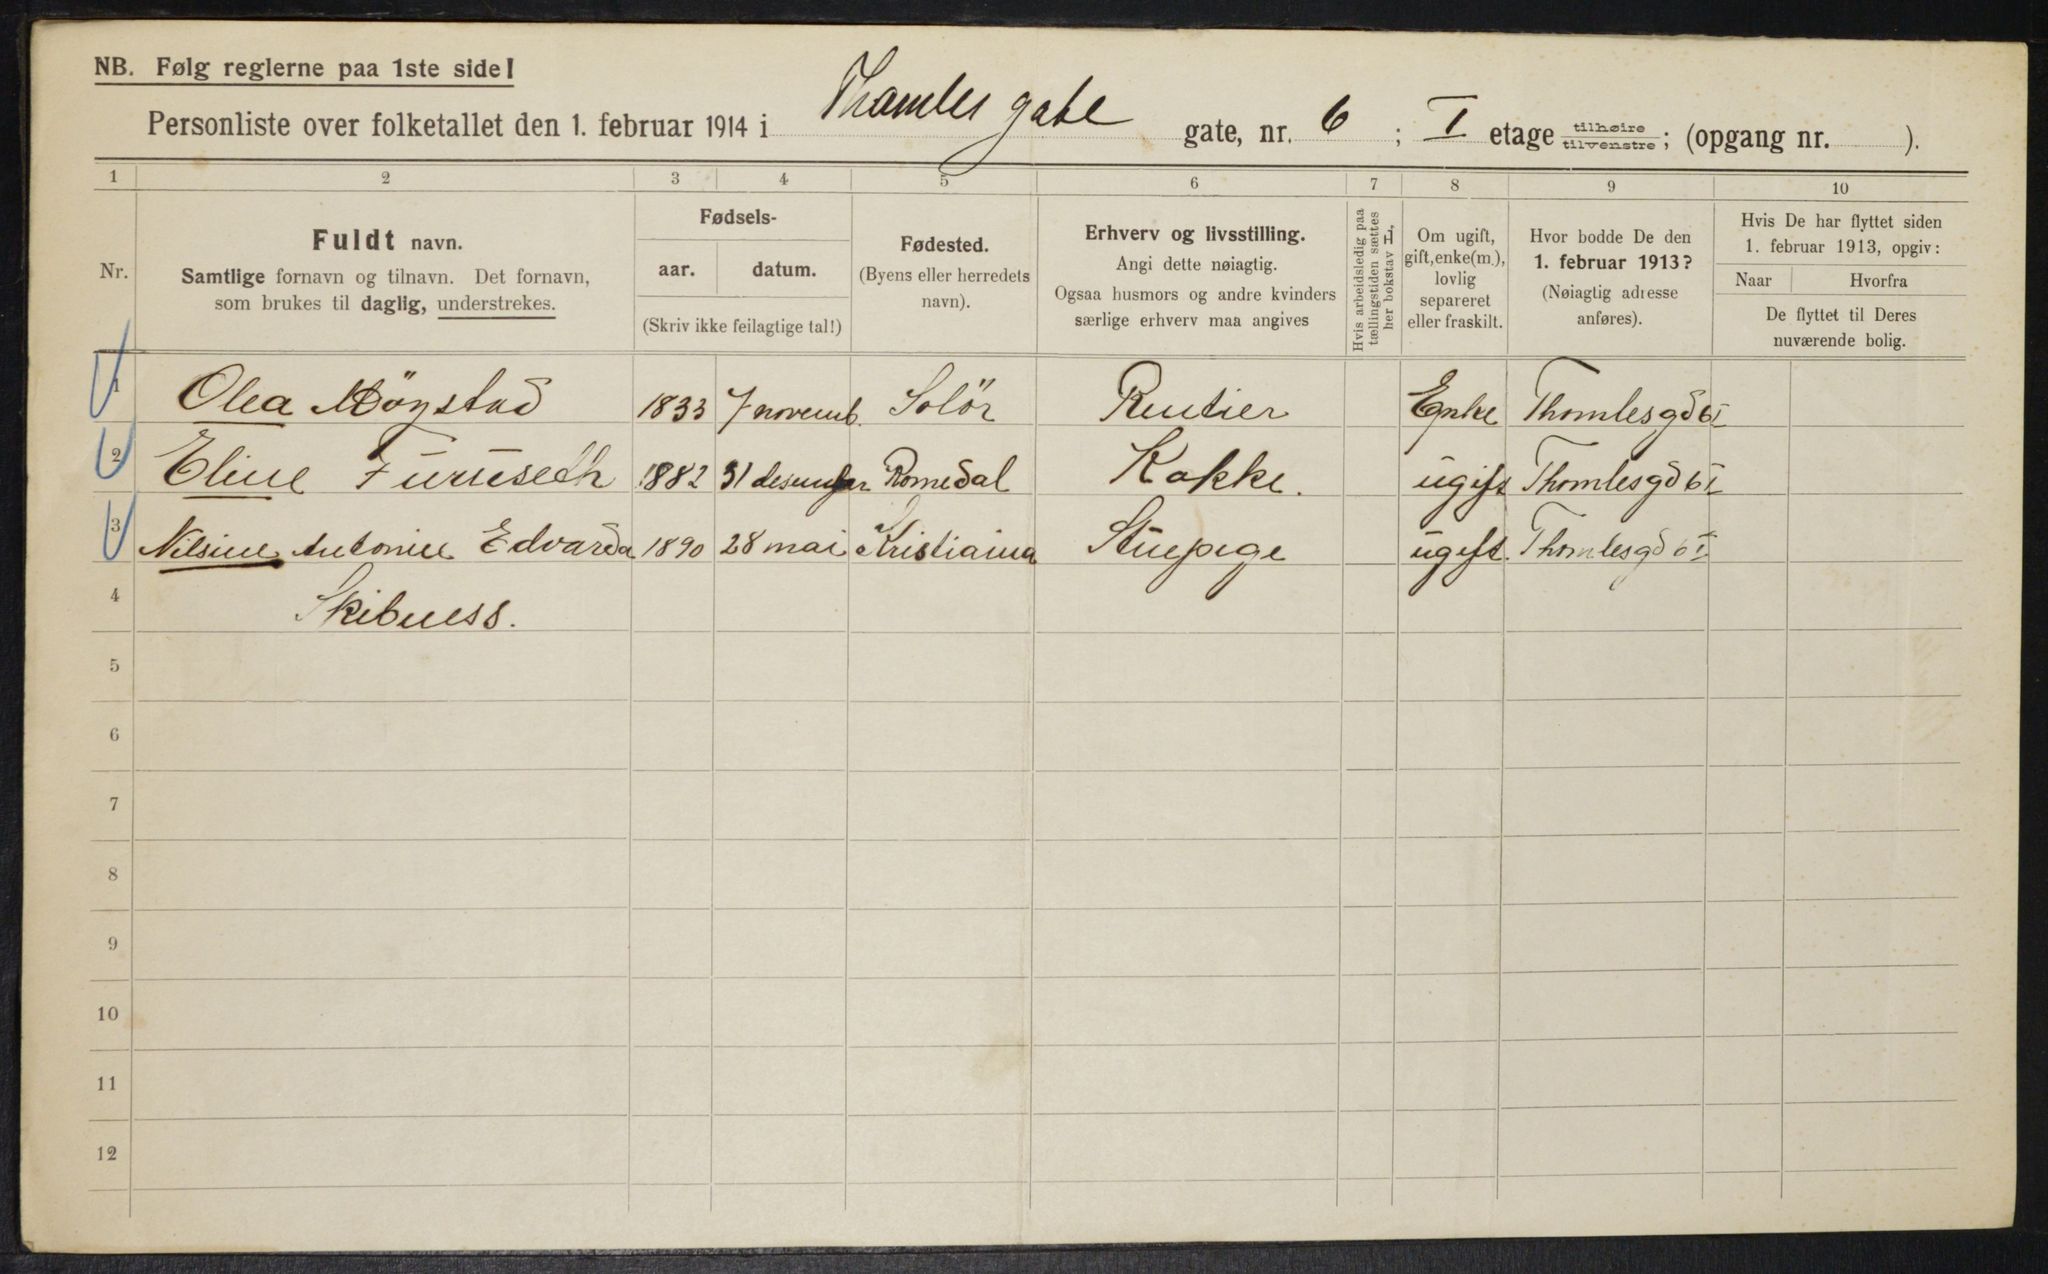 NB. Følg reglerne paa 1ste side!
Personliste over folketallet den 1. februar 1914 i Thomles gate gate, nr. 6 ; I etage tilhøire tilvenstre ; (opgang nr. ).
1 2 3 4 5 6 7 8 9 10
Nr.
Fuldt navn.
Samtlige fornavn og tilnavn. Det fornavn,
som brukes til daglig, understrekes.
Fødsels-
aar. datum.
(Skriv ikke feilagtige tal!)
Fødested.
(Byens eller herredets
navn).
Erhverv og livsstilling.
Angi dette nøiagtig.
Ogsaa husmors og andre kvinders
særlige erhverv maa angives
Hvis arbeidsledig paa
tællingstiden sættes
her bokstav L.
Om ugift,
gift, enke(m.),
lovlig
separeret
eller fraskilt.
Hvor bodde De den
1. februar 1913?
(Nøiagtig adresse
anføres).
Hvis De har flyttet siden
1. februar 1913, opgiv:
Naar Hvorfra
De flyttet til Deres
nuværende bolig.
1 Olea Høystad 1833 7 novemb. Solör Rentier Enke Thomlesgd 6 I
2 Eline Furuseth 1882 31 desember Romedal Kokke. ugift Thomlesgd 6 I
3 Nilsine Antonie Edvarda 1890 28 mai Kristiania Stuepige ugift. Thomlesgd 6 I
4 Skibness.
5
6
7
8
9
10
11
12